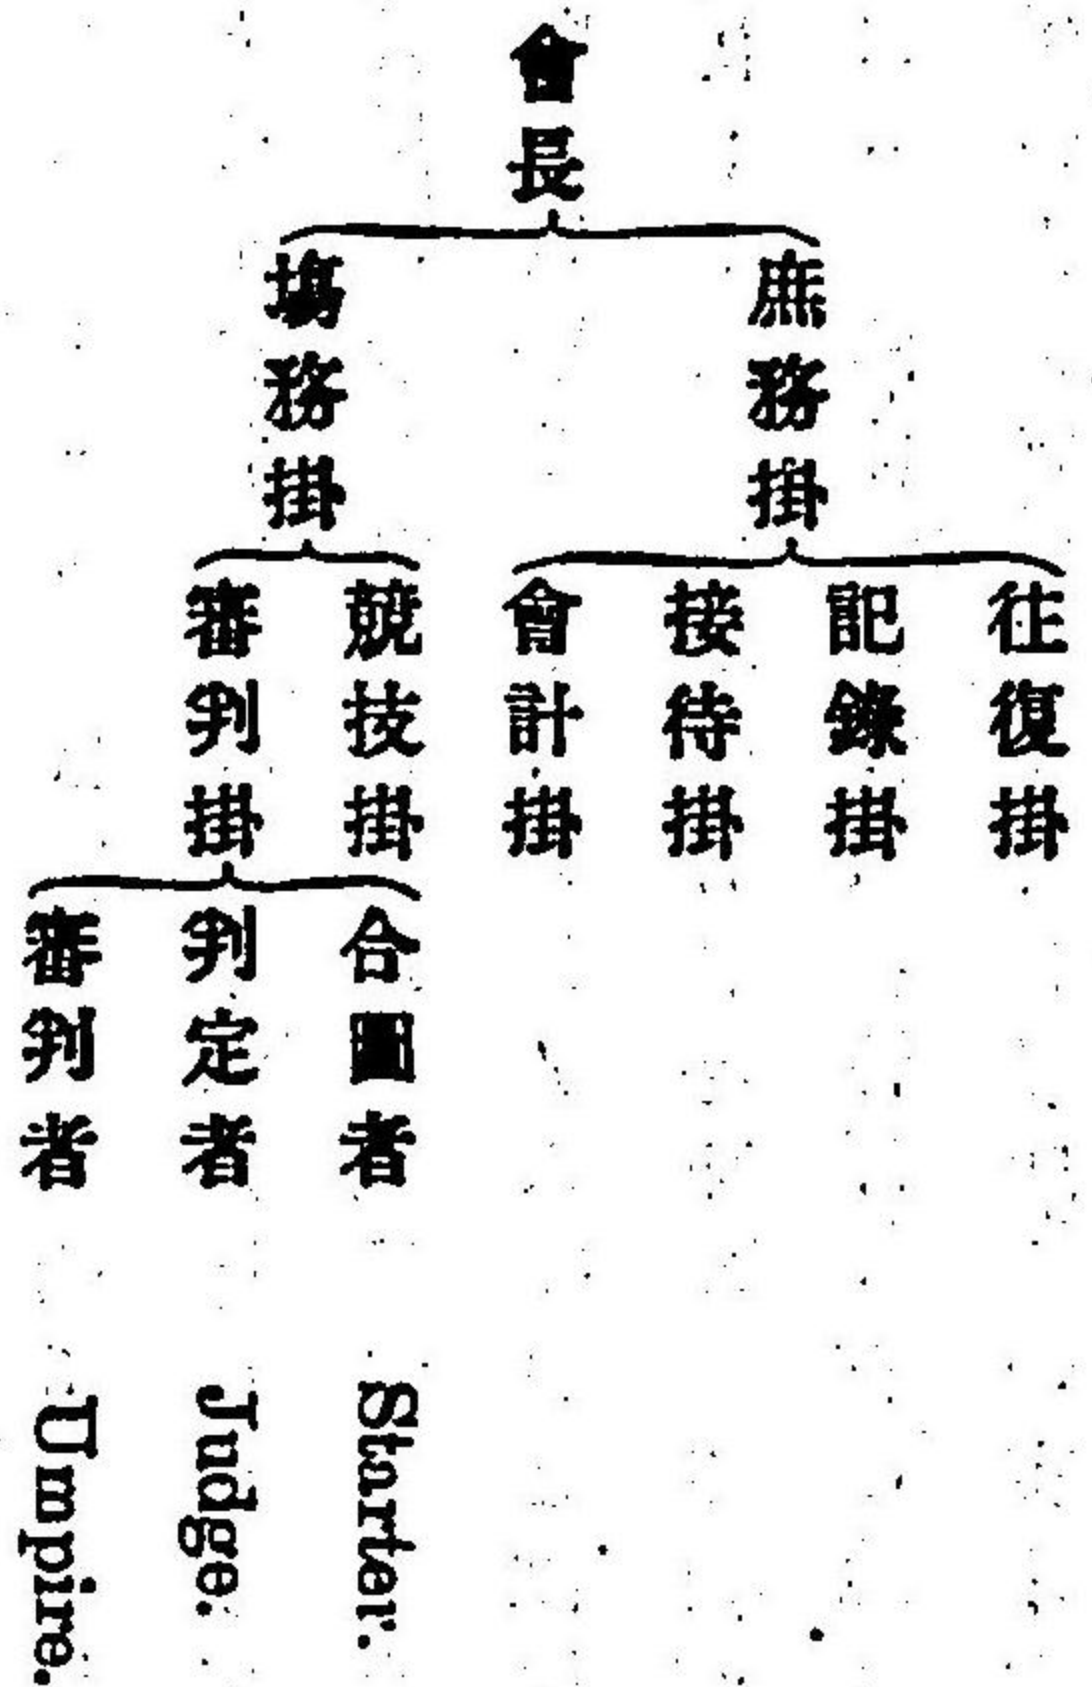 會長
庶務掛
場務掛
往復掛
記錄掛
接待掛
會計掛
競技掛
審判掛
合圖者 Starter.
判定者 Judge.
審判者 Umpire.